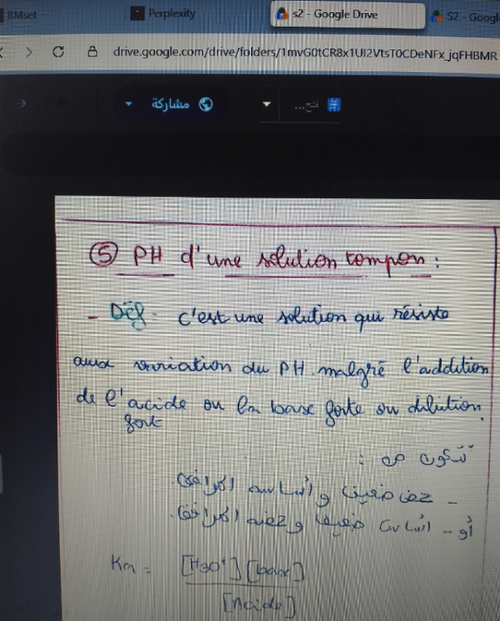 8Mset
Perplexity
s2 - Google Drive
S2 - Googl
drive.google.com/drive/folders/1mvG0tCR8x1UI2VtsT0CDeNFx_jqFHBMR
مشاركة
فتح...
⑤ PH d'une solution tompon :
- Déf: c'est une solution qui résiste
aux variation du PH malgré l'addition
de l'acide ou la base forte ou dilution.
fort
تتكون من :
- حمض ضعيف وأساسه المرافق
أو - أساس ضعيف وحمضه المرافق.
Ka = [H3O+][base]
[Acide]